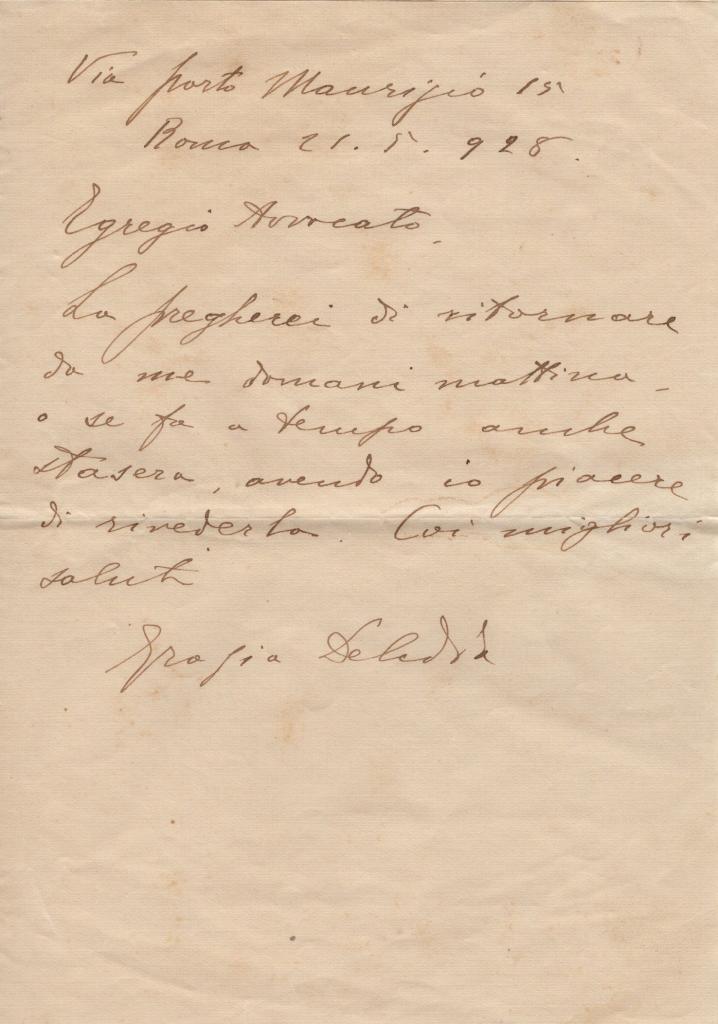 Via Porto Maurizio 15
Roma 21. 5. 928.
Egregio Avvocato,
La pregherei di ritornare
da me domani mattina,
o se fa a tempo anche
stasera, avendo io piacere
di rivederla. Coi migliori
saluti
Grazia Deledda